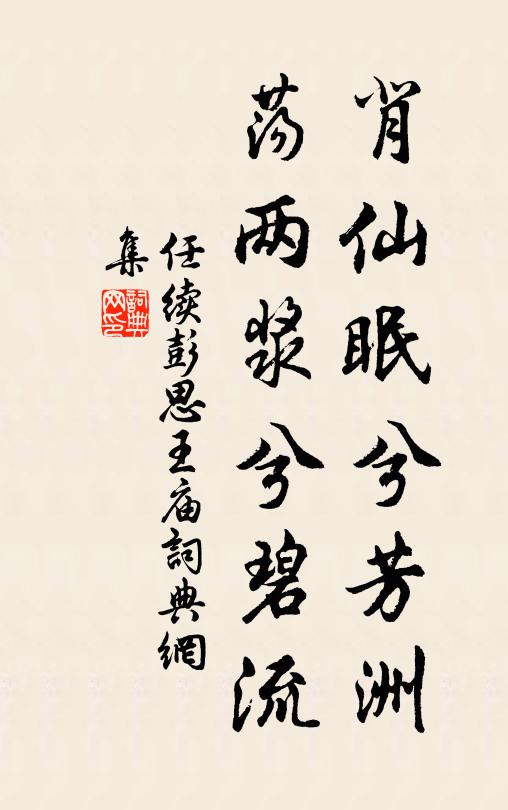 肖仙眠兮芳洲
荡两浆兮碧流
任续彭思王庙詞典網
集
詞典
网印